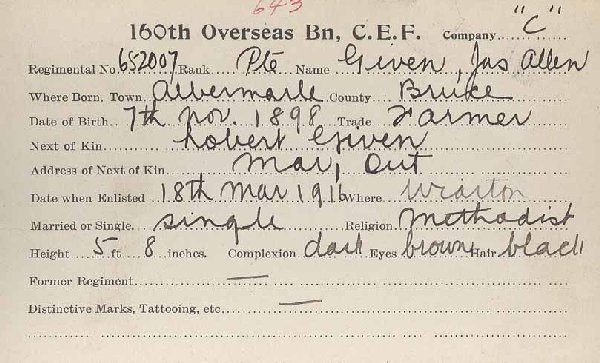 643
160th Overseas Bn, C.E.F. Company "C"
Regimental No. 652007 Rank Pte Name Given, Jas Allen
Where Born, Town Albermarle County Bruce
Date of Birth 7th Nov. 1898 Trade Farmer
Next of Kin Robert Given
Address of Next of Kin Mar, Ont
Date when Enlisted 18th Mar 1916 Where Wiarton
Married or Single single Religion Methodist
Height 5 ft 8 inches. Complexion dark Eyes brown Hair black
Former Regiment —
Distinctive Marks, Tattooing, etc. —